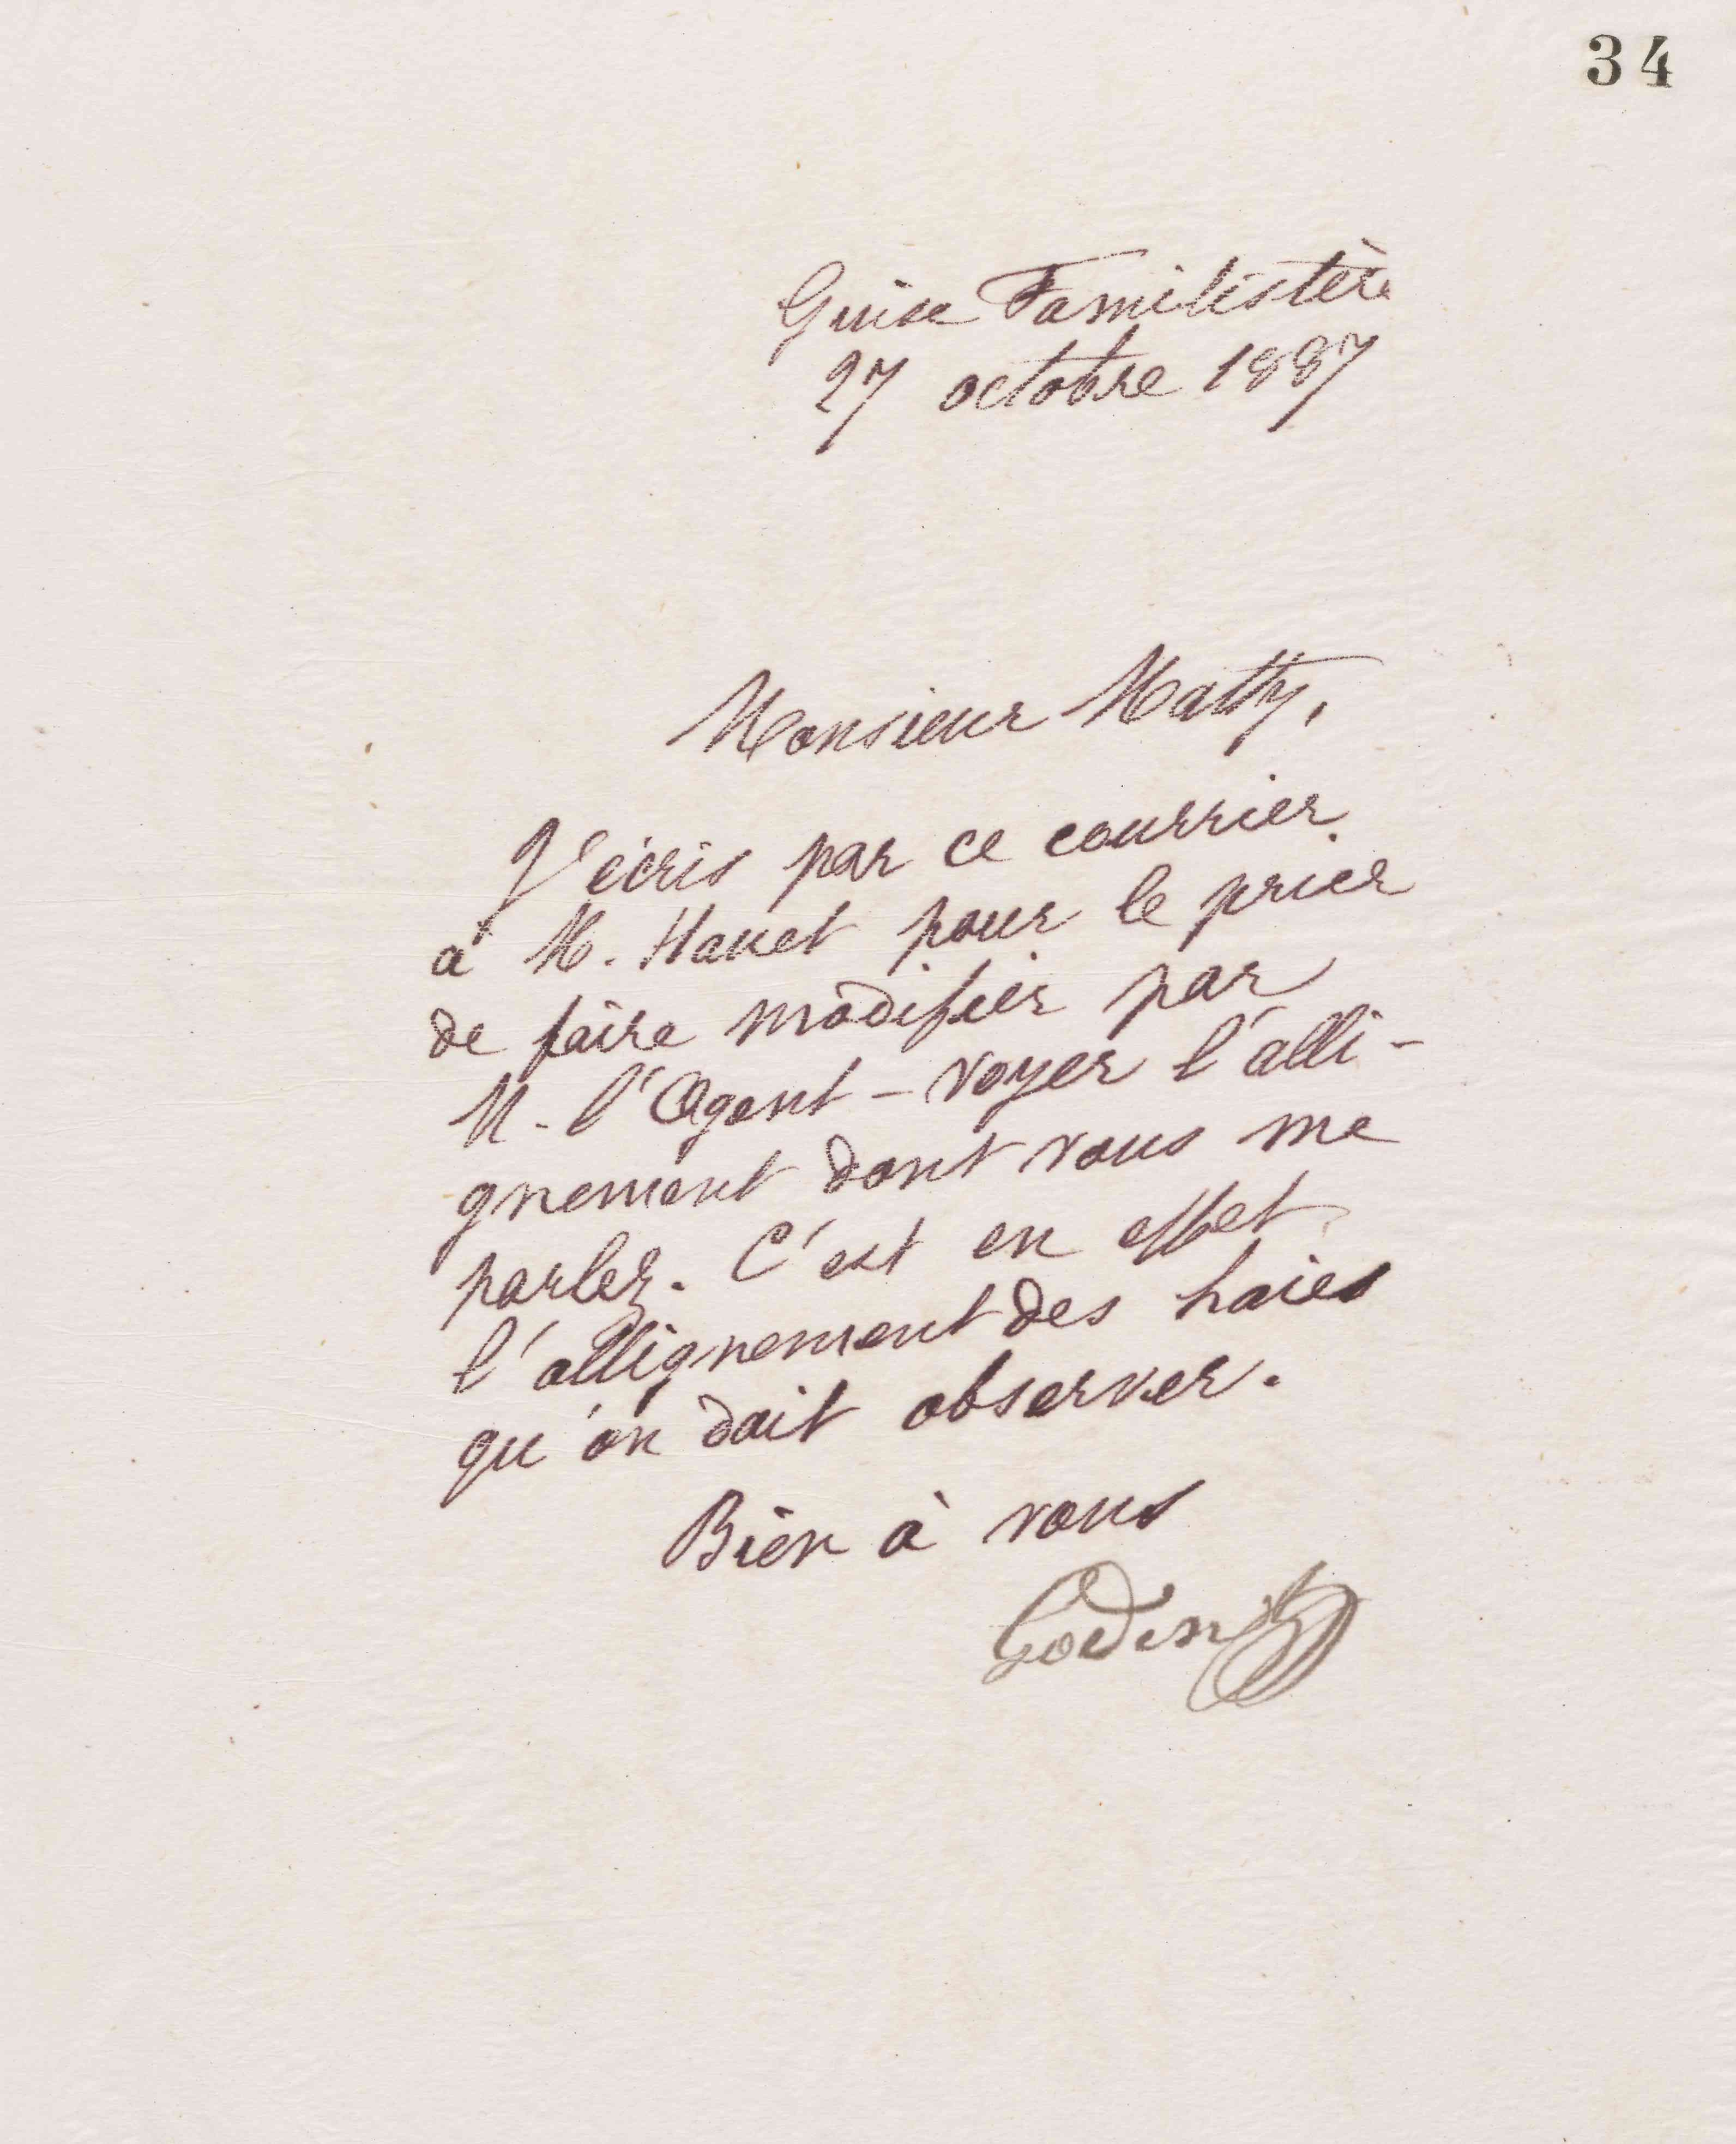 34
Guise Familistère
27 octobre 1887
Monsieur Mathy,
J'écris par ce courrier
à M. Hanet pour le prier
de faire modifier par
M. l'Agent-voyer l'alli-
gnement dont vous me
parlez. C'est en effet
l'allignement des haies
qu'on doit observer.
Bien à vous
Godin